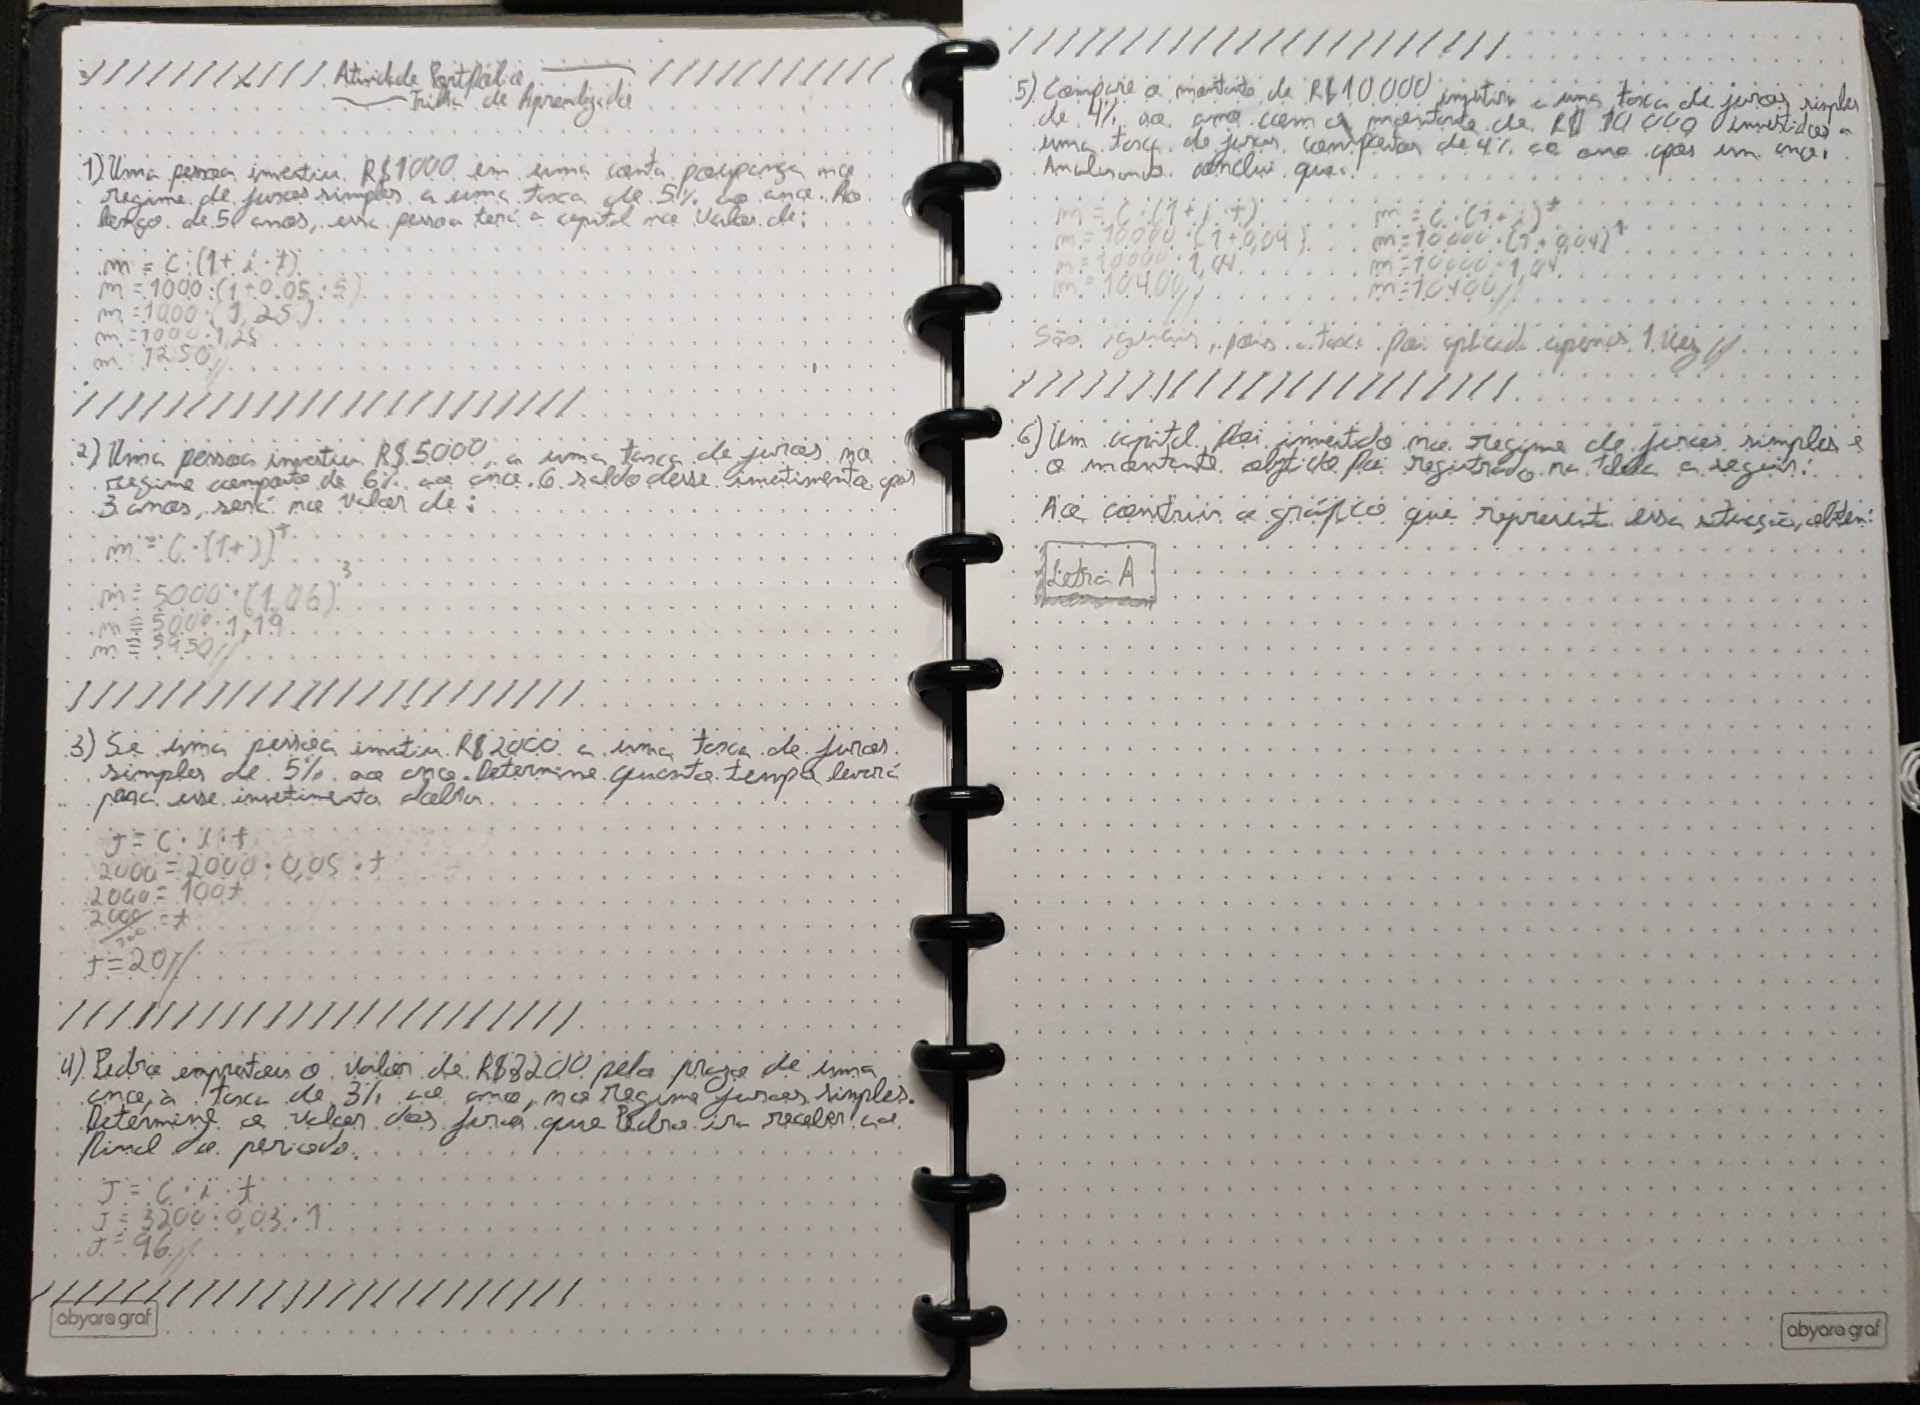 Atividade Portfólio
Trilha de Aprendizado
1) Uma pessoa investiu R$1000 em uma conta poupança no
regime de juros simples a uma taxa de 5% ao ano. Ao
longo de 5 anos, essa pessoa terá o capital no valor de:
m = C·(1+i·t)
m = 1000·(1+0.05·5)
m = 1000·(1,25)
m = 1000·1,25
m = 1250//
2) Uma pessoa investiu R$ 5000, a uma taxa de juros no
regime composto de 6% ao ano. O saldo desse investimento após
3 anos, será no valor de:
m = C·(1+i)^t
m = 5000·(1,06)^3
m = 5000·1,19
m = 5950//
3) Se uma pessoa investiu R$2000 a uma taxa de juros
simples de 5% ao ano. Determine quanto tempo levará
para esse investimento dobrar.
J = C·i·t
2000 = 2000·0,05·t
2000 = 100t
2000/100 = t
t = 20//
4) Pedro emprestou o valor de R$3200 pelo prazo de uma
ano, à taxa de 3% ao ano, no regime juros simples.
Determine o valor dos juros que Pedro ira receber ao
final do periodo.
J = C·i·t
J = 3200·0,03·1
J = 96//
abyara graf
5) Compare o montante de R$10000 a uma taxa de juros simples
de 4% ao ano com o montante de R$ 10 000 investidos a
uma taxa de juros compostos de 4% ao ano após um ano.
Analisando conclui que:
m = C·(1+i·t)
m = 10000·(1+0,04)
m = 10000·1,04
m = 10400//
m = C·(1+i)^t
m = 10000·(1+0,04)^1
m = 10000·1,04
m = 10400//
São iguais, pois a taxa foi aplicada apenas 1 vez//
6) Um capital foi investido no regime de juros simples e
o montante obtido foi registrado na tabela a seguir:
Ao construir o gráfico que representa essa situação, obtem:
Letra A
abyara graf